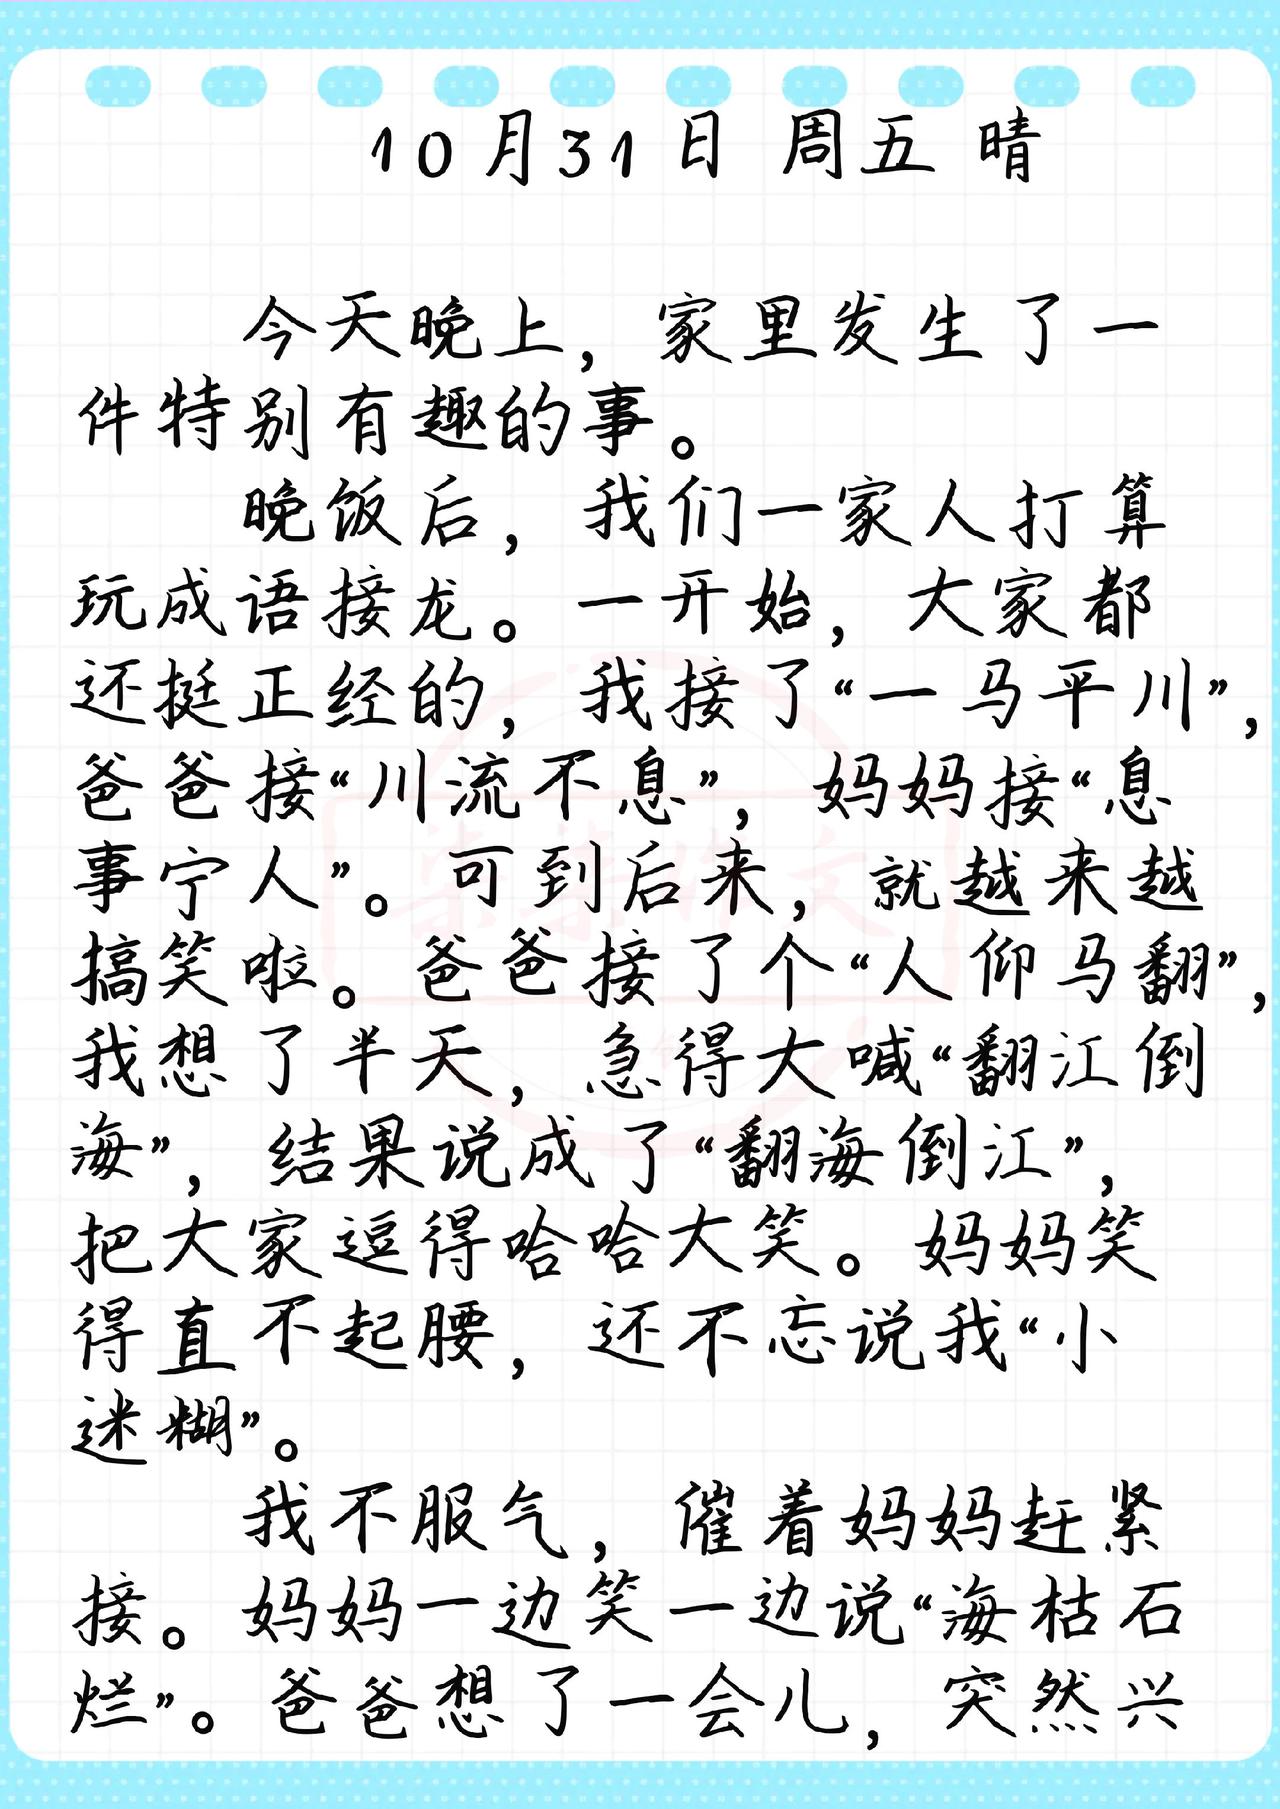 10月31日 周五 晴
今天晚上，家里发生了一
件特别有趣的事。
晚饭后，我们一家人打算
玩成语接龙。一开始，大家都
还挺正经的，我接了“一马平川”，
爸爸接“川流不息”，妈妈接“息
事宁人”。可到后来，就越来越
搞笑啦。爸爸接了个“人仰马翻”，
我想了半天，急得大喊“翻江倒
海”，结果说成了“翻海倒江”，
把大家逗得哈哈大笑。妈妈笑
得直不起腰，还不忘说我“小
迷糊”。
我不服气，催着妈妈赶紧
接。妈妈一边笑一边说“海枯石
烂”。爸爸想了一会儿，突然兴